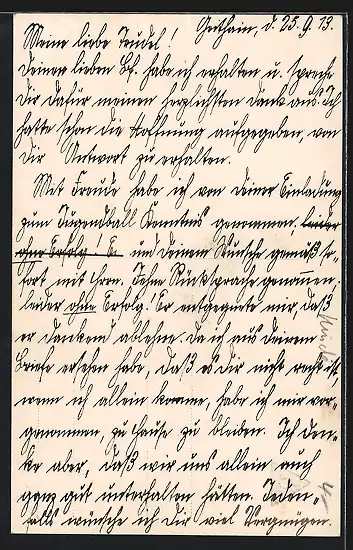 Geithain, d. 25.9.13.
Meine liebe Trudel!
Deinen lieben Bf. habe ich erhalten u. spreche
Dir dafür meinen herzlichsten Dank aus. Ich
hatte schon die Hoffnung aufgegeben, von
Dir Antwort zu erhalten.
Mit Freude habe ich von Deiner Einladung
zum Jugendball Kenntnis genommen. leider
ohne Erfolg! Er und Deinem Wunsche gemäß so-
fort mit Hrn. Rücksprache genommen,
leider ohne Erfolg! Er entgegnete mir, daß
er dankend ablehne. Da ich aus Deinem
Briefe ersehen habe, daß es Dir nicht recht ist,
wenn ich allein komme, habe ich mir vor-
genommen, zu Hause zu bleiben. Ich den-
ke aber, daß wir uns allein auch
ganz gut unterhalten hätten. Jeden-
falls wünsche ich Dir viel Vergnügen.